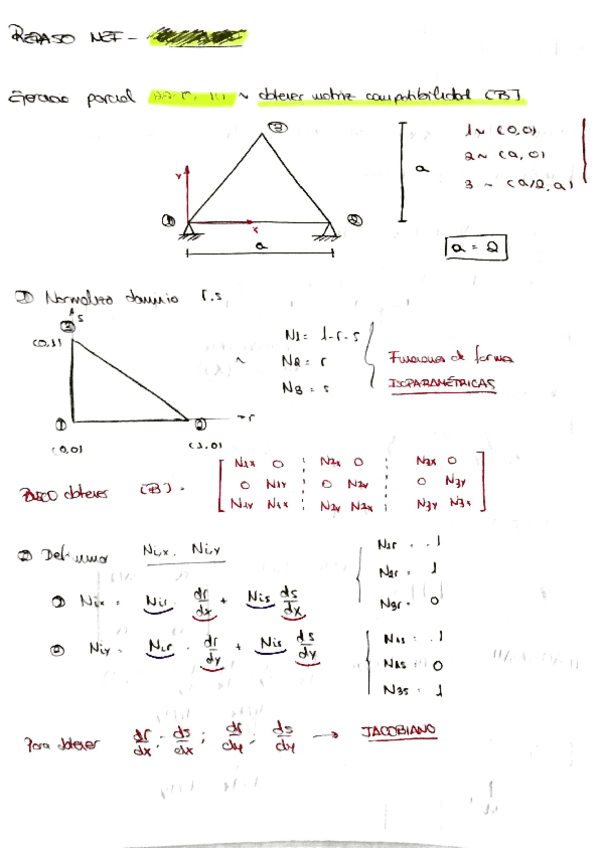 REPASO MEF -
Ejercicio parcial ~ obtener matriz compatibilidad [B]
③
1 ~ (0,0)
2 ~ (a,0)
3 ~ (a/2,a)
a
Y
① x ②
a
a = 2
① Normalizo dominio r.s
s
③
(0,1)
① ② r
(0,0) (1,0)
~
N1 = 1-r-s
N2 = r
N3 = s
Funciones de forma
ISOPARAMÉTRICAS
BUSCO obtener [B] =
N1x 0 N2x 0 N3x 0
0 N1y 0 N2y 0 N3y
N1y N1x N2y N2x N3y N3x
② Determino Ni,x . Ni,y
① Nix = Nir . dr/dx + Nis ds/dx
② Niy = Nir . dr/dy + Nis ds/dy
N1r = -1
N2r = 1
N3r = 0
N1s = -1
N2s = 0
N3s = 1
Para obtener dr/dx ; ds/dx ; dr/dy ; ds/dy → JACOBIANO